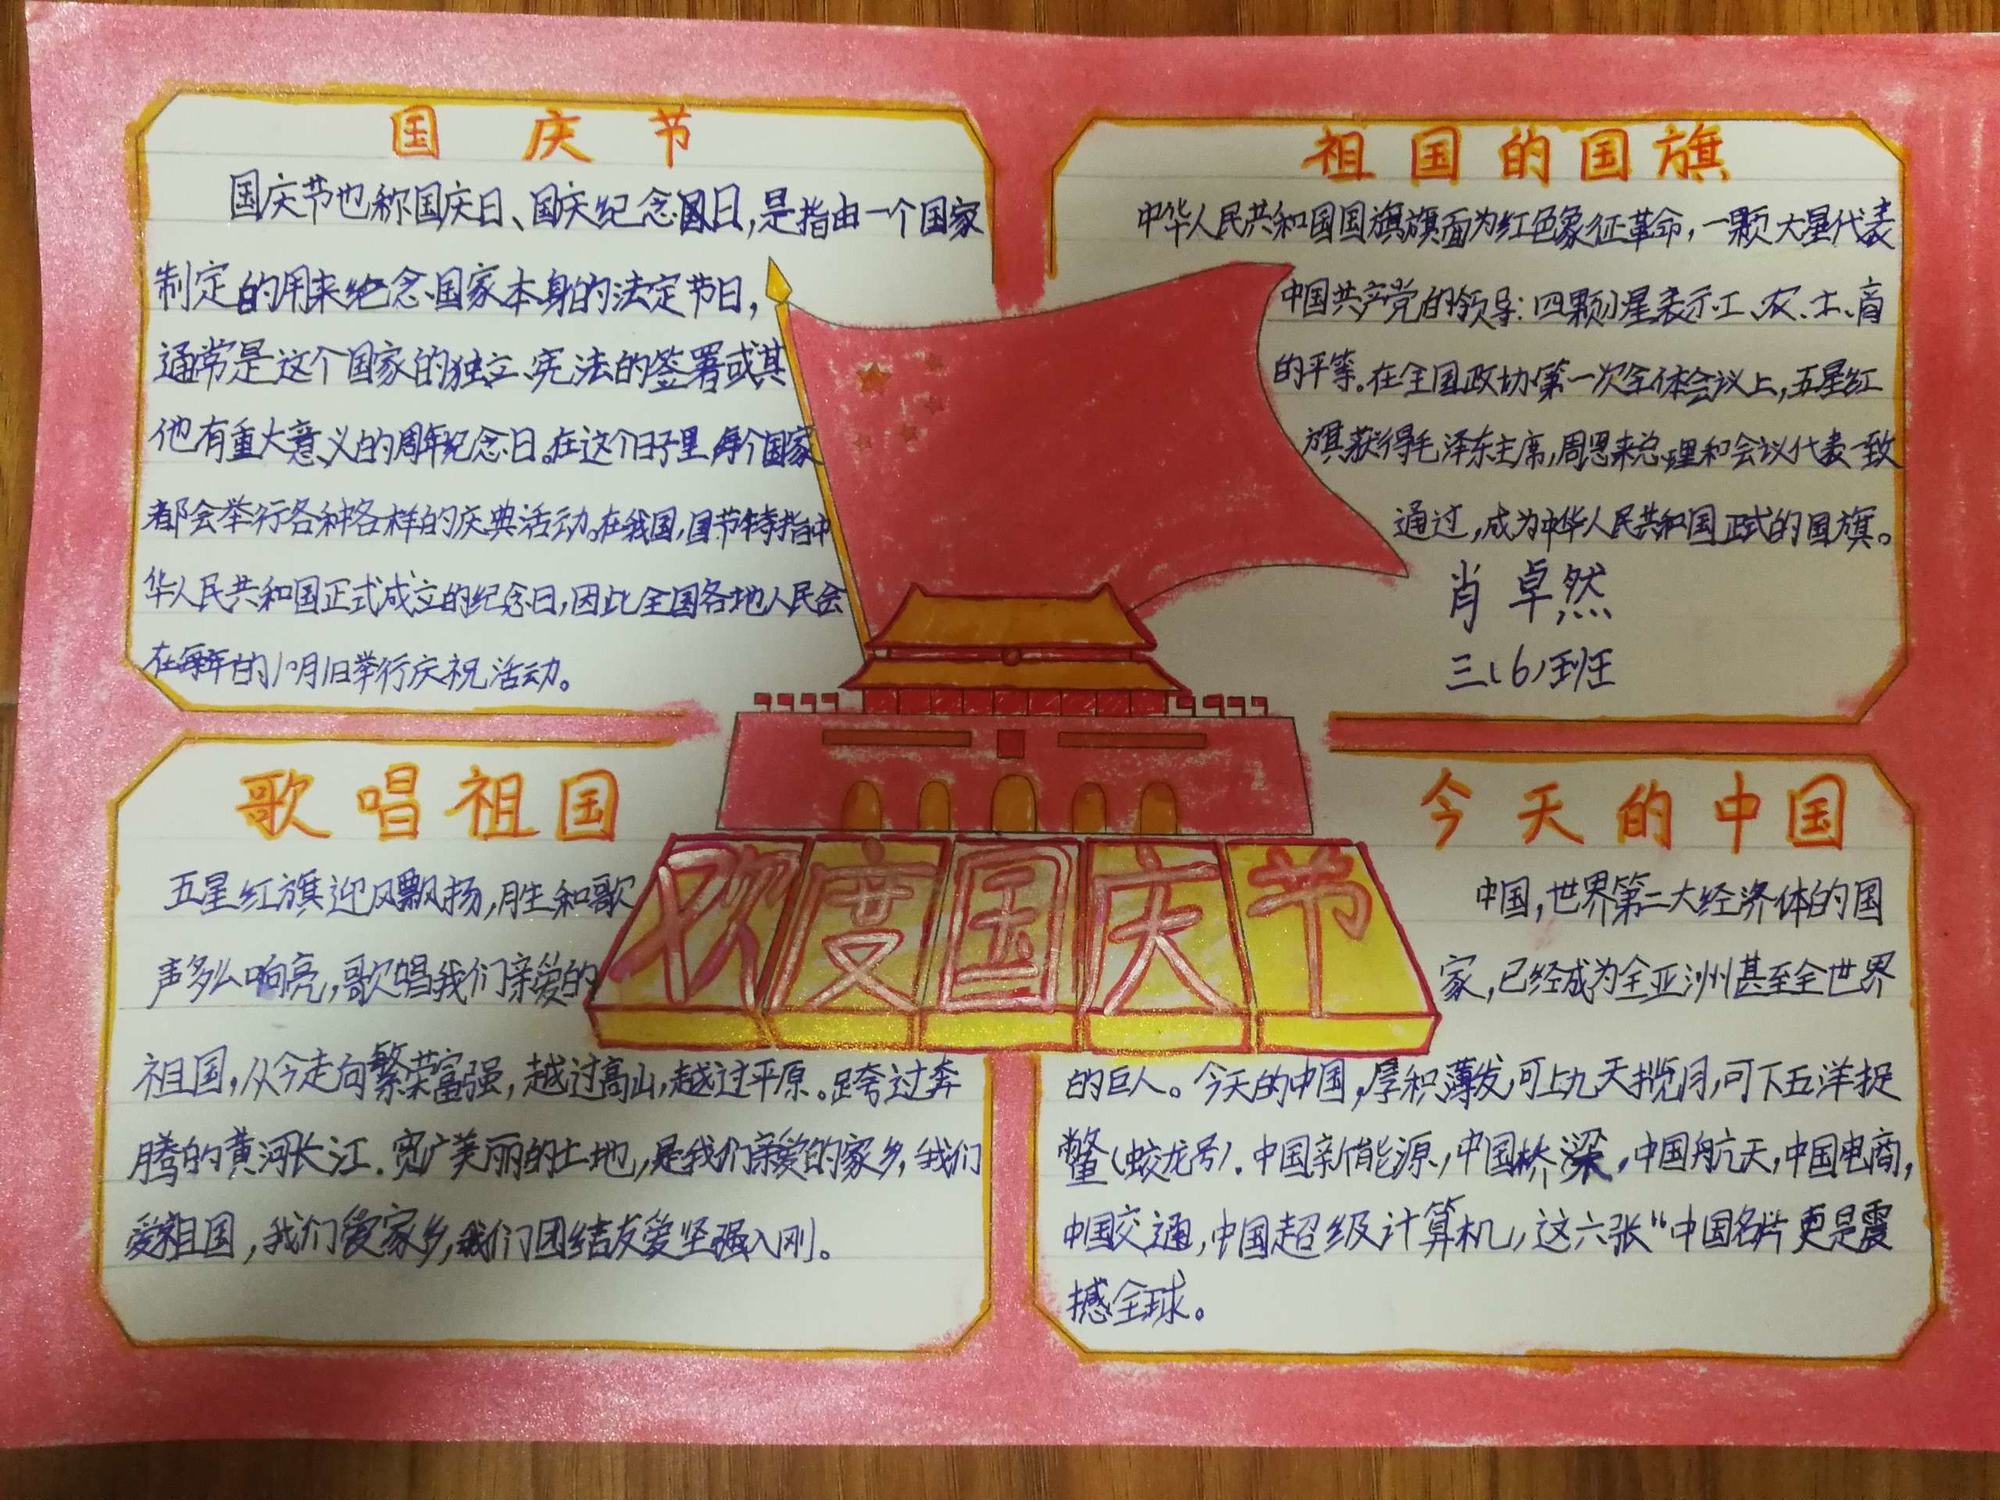 国庆节
国庆节也称国庆日、国庆纪念国日,是指由一个国家
制定的用来纪念国家本身的法定节日,
通常是这个国家的独立、宪法的签署或其
他有重大意义的周年纪念日。在这个日子里每个国家
都会举行各种各样的庆典活动。在我国,国节特指中
华人民共和国正式成立的纪念日,因此全国各地人民会
在每年的10月1日举行庆祝活动。
祖国的国旗
中华人民共和国国旗旗面为红色象征革命,一颗大星代表
中国共产党的领导:四颗小星表示工、农、士、商
的平等。在全国政协第一次全体会议上,五星红
旗获得毛泽东主席,周恩来总理和会议代表一致
通过,成为中华人民共和国正式的国旗。
肖卓然
三(6)班
欢度国庆节
歌唱祖国
五星红旗迎风飘扬,胜利歌
声多么响亮,歌唱我们亲爱的
祖国,从今走向繁荣富强,越过高山,越过平原。跨过奔
腾的黄河长江.宽广美丽的土地,是我们亲爱的家乡,我们
爱祖国,我们爱家乡,我们团结友爱坚强入刚。
今天的中国
中国,世界第二大经济体的国
家,已经成为全亚洲州甚至全世界
的巨人。今天的中国,厚积薄发,可上九天揽月,可下五洋捉
鳖(蛟龙号).中国新能源,中国桥梁,中国航天,中国电商,
中国交通,中国超级计算机,这六张“中国名片更是震
撼全球。